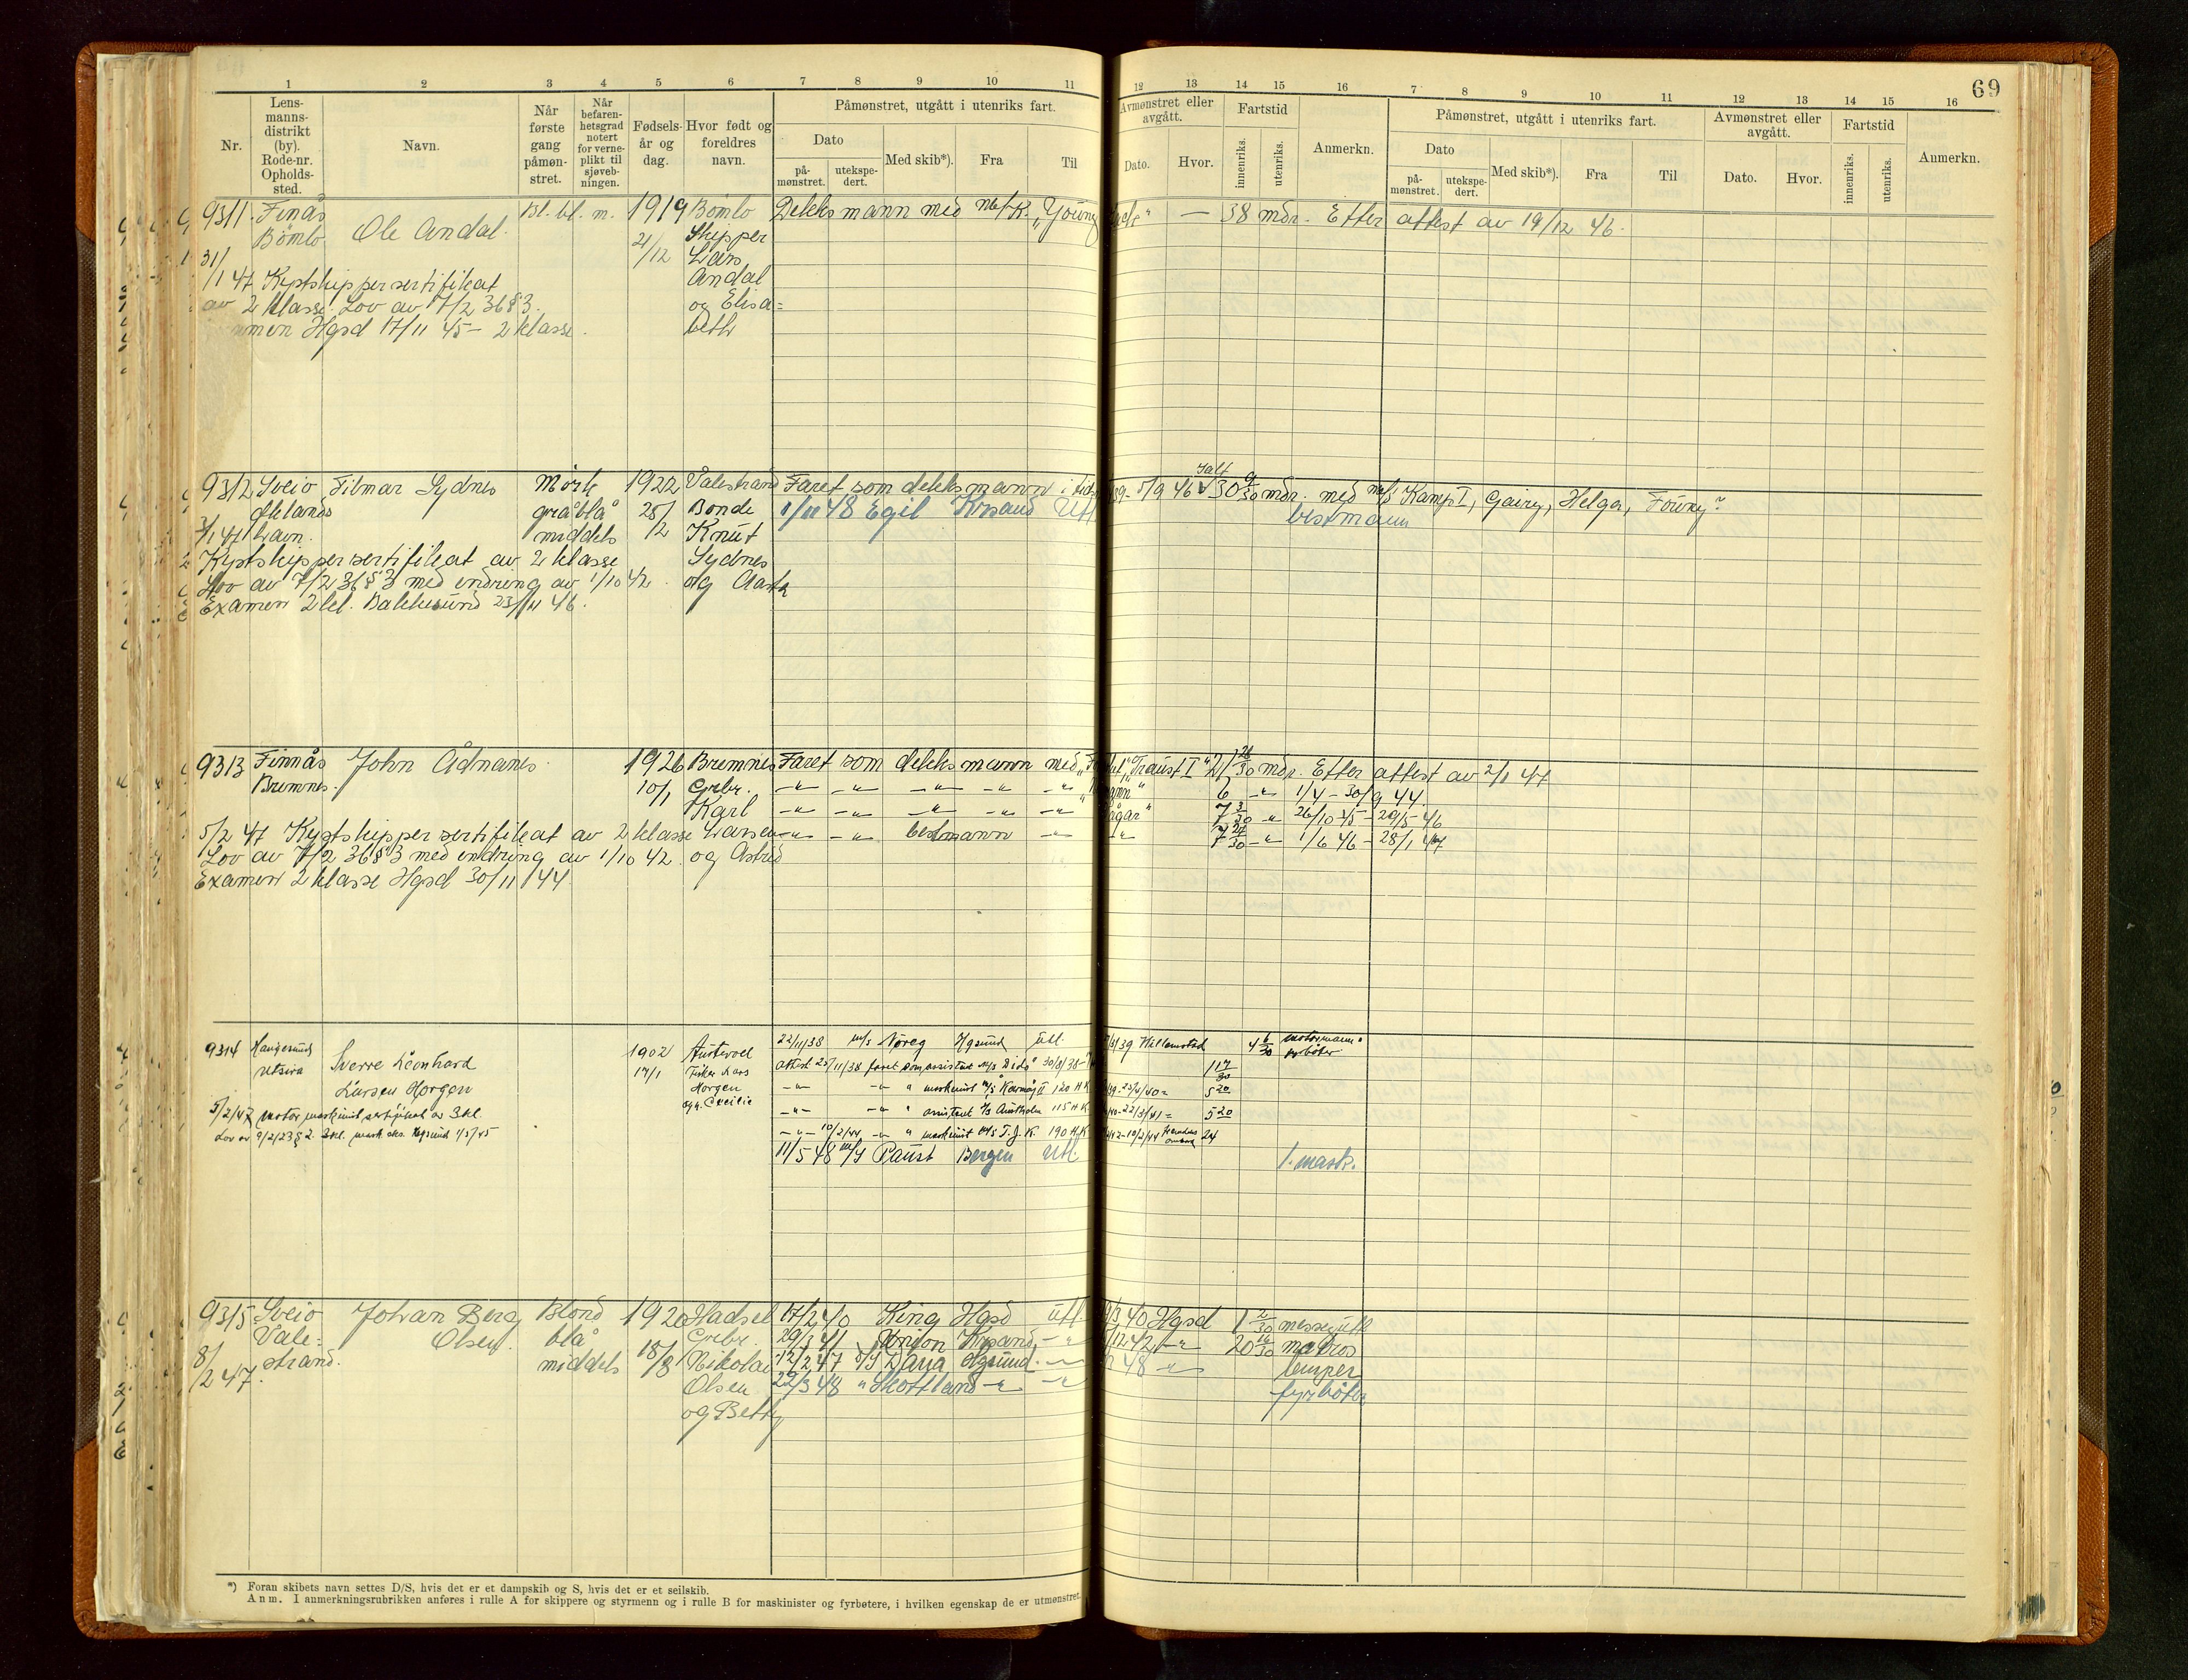 69
1 2 3 4 5 6 7 8 9 10 11 12 13 14 15 16 7 8 9 10 11 12 13 14 15 16
Nr.
Lens-
manns-
distrikt
(by).
Rode-nr.
Opholds-
sted.
Navn.
Når
første
gang
påmøn-
stret.
Når
befaren-
hetsgrad
notert
for verne-
plikt til
sjøveb-
ningen.
Fødsels-
år og
dag.
Hvor født og
foreldres
navn.
Påmønstret, utgått i utenriks fart.
Dato
på-
mønstret.
utekspe-
dert.
Med skib*).
Fra
Til
Avmønstret eller
avgått.
Dato.
Hvor.
Fartstid
innenriks.
utenriks.
Anmerkn.
Påmønstret, utgått i utenriks fart.
Dato
på-
mønstret.
utekspe-
dert.
Med skib*).
Fra
Til
Avmønstret eller
avgått.
Dato.
Hvor.
Fartstid
innenriks.
utenriks.
Anmerkn.
9311 Finås Bl. bl. m. 1919 Bømlo Dekksmann med M/K. "Young — 38 mdr. Efter attest av 19/12 46.
Bømlo Ole Andal. 21/12 Skipper
31/ Lars
/1 47 Kystskippersertifikat Andal
av 2 klasse. Lov av 7/2 36 § 3. og Elisa=
Hgsd 17/11 45 – 2 klasse. beth
9312 Sveio Tilmar Sydnes Mørk 1922 Valestrand Faret som dekksmann i 39 – 5/9 46 ialt 30 9/30 mdr. med M/S Kamp I, Gairy, Helga,
Økland gråblå 28/2 Bonde 1/11 48 Egil Krsand Utl. bestmann
3/1 47 middels Knut
Kystskippersertifikat av 2 klasse Sydnes
Lov av 7/2 36 § 3 med endring av 1/10 42. og Aasta
Examen 2 kl. Bakkasund 23/11 46.
9313 Finnås John Ådnanes. 1926 Bremnes Faret som dekksmann med "Traust I" 21 28/30 mdr. Efter attest av 2/1 47
Bremnes. 10/1 Grbr. —"— —"— —"— —"— —"— 6 —"— 1/4 – 30/9 44.
Karl —"— —"— —"— —"— —"— 7 3/30 —"— 26/10 45 – 29/5 46
5/2 47 Kystskippersertifikat av 2 klasse Larsen —"— —"— bestmann —"— —"— 7 27/30 —"— 1/6 46 – 28/1 47
Lov av 7/2 36 § 3 med endring av 1/10 42. og Astrid
Examen 2 klasse Hgsd 30/11 44
9314 Haugesund Sverre Leonhard 1902 Austevoll 22/11/38 M/S Noreg Hgsund Utl. /3/39 Willemstad 4 6/30 motormann
Utsira 17/1 Fisker Lars attest 25/11/38 faret som assistent M/S Dido 30/8/38 – fyrbøter 1 17/30
Larsen Horgen Horgen —"— —"— " maskinist M/S Karmøy II 120 H.K. 39 – 23/4/40 = 5 20
5/2/47 motormaskinistsertifikat av 3 kl. og h. Cecilie —"— —"— " assistent 115 H.K. 40 – 22/3/41 = 5 20
Lov av 9/2/23 § 2. 3 kl. mask. eks. Hgsund 1/3/45 —"— 10/2/44 —"— " maskinist M/S T. J. K. 190 H.K. 42 – 10/2/44 24
11/5 48 M/S Paust Bergen Utl. 1. mask.
9315 Sveio Johan Berg Blond 1920 Hadsel 17/2 40 King Hgsd Utl. /3 40 Hgsd 1 2/30 messegutt
Vale= Olsen. blå Grbr. 29/3 41 Krsand —"— /12 42 —"— 20 16/30 matros
8/ strand. middels 18/8 Nikolai 12/2 47 D/S Dana Hgsund. —"— 48 —"— lemper
/2 47. Olsen 22/3 48 " Skottland —"— —"— fyrbøter
og Betty
*) Foran skibets navn settes D/S, hvis det er et dampskib og S, hvis det er et seilskib.
Anm. I anmerkningsrubrikken anføres i rulle A for skippere og styrmenn og i rulle B for maskinister og fyrbøtere, i hvilken egenskap de er utmønstret.